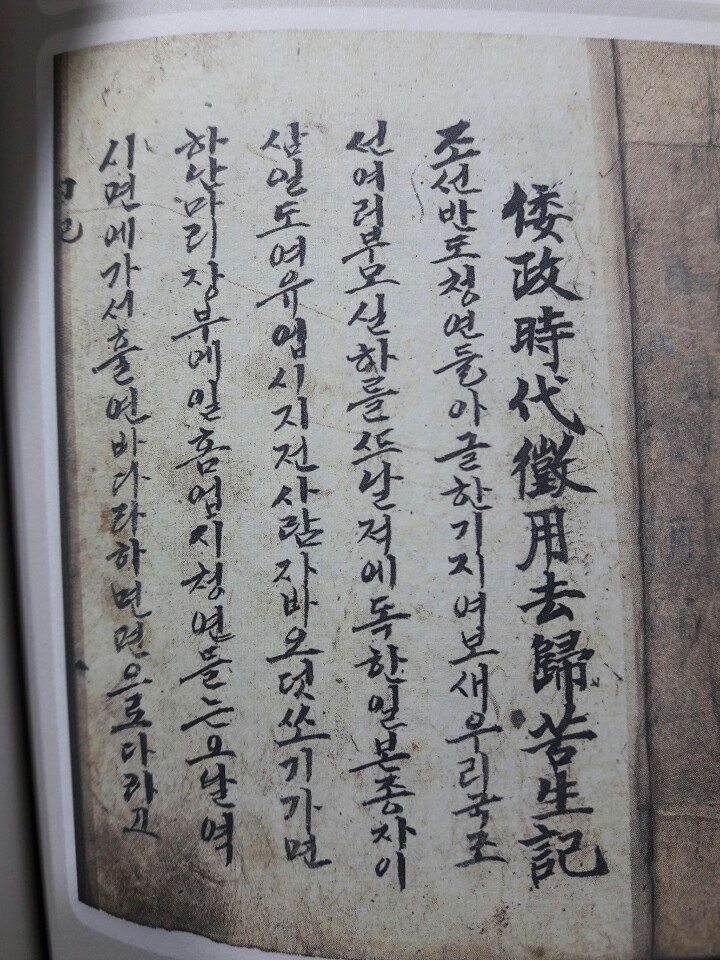 倭政時代徵用去歸苦生記
조선반도청연들아글한기지여보새우리국조
선여러부모실하를쓰날져에독한일본종자이
삼일도여유업시지전사람자바오덧쏘기가면
하난마리장부에일홈업시청연들는오날역
시면에가서훌연바다라하면면으로다리고